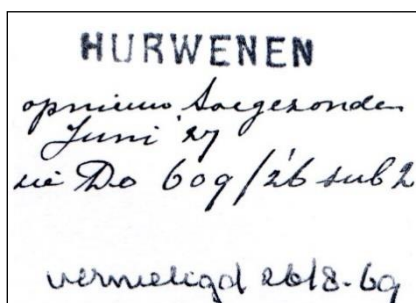 HURWENEN
opnieuw toegezonden
Juni '27
zie Do 609/26 sub 2
vernietigd 26/8-69